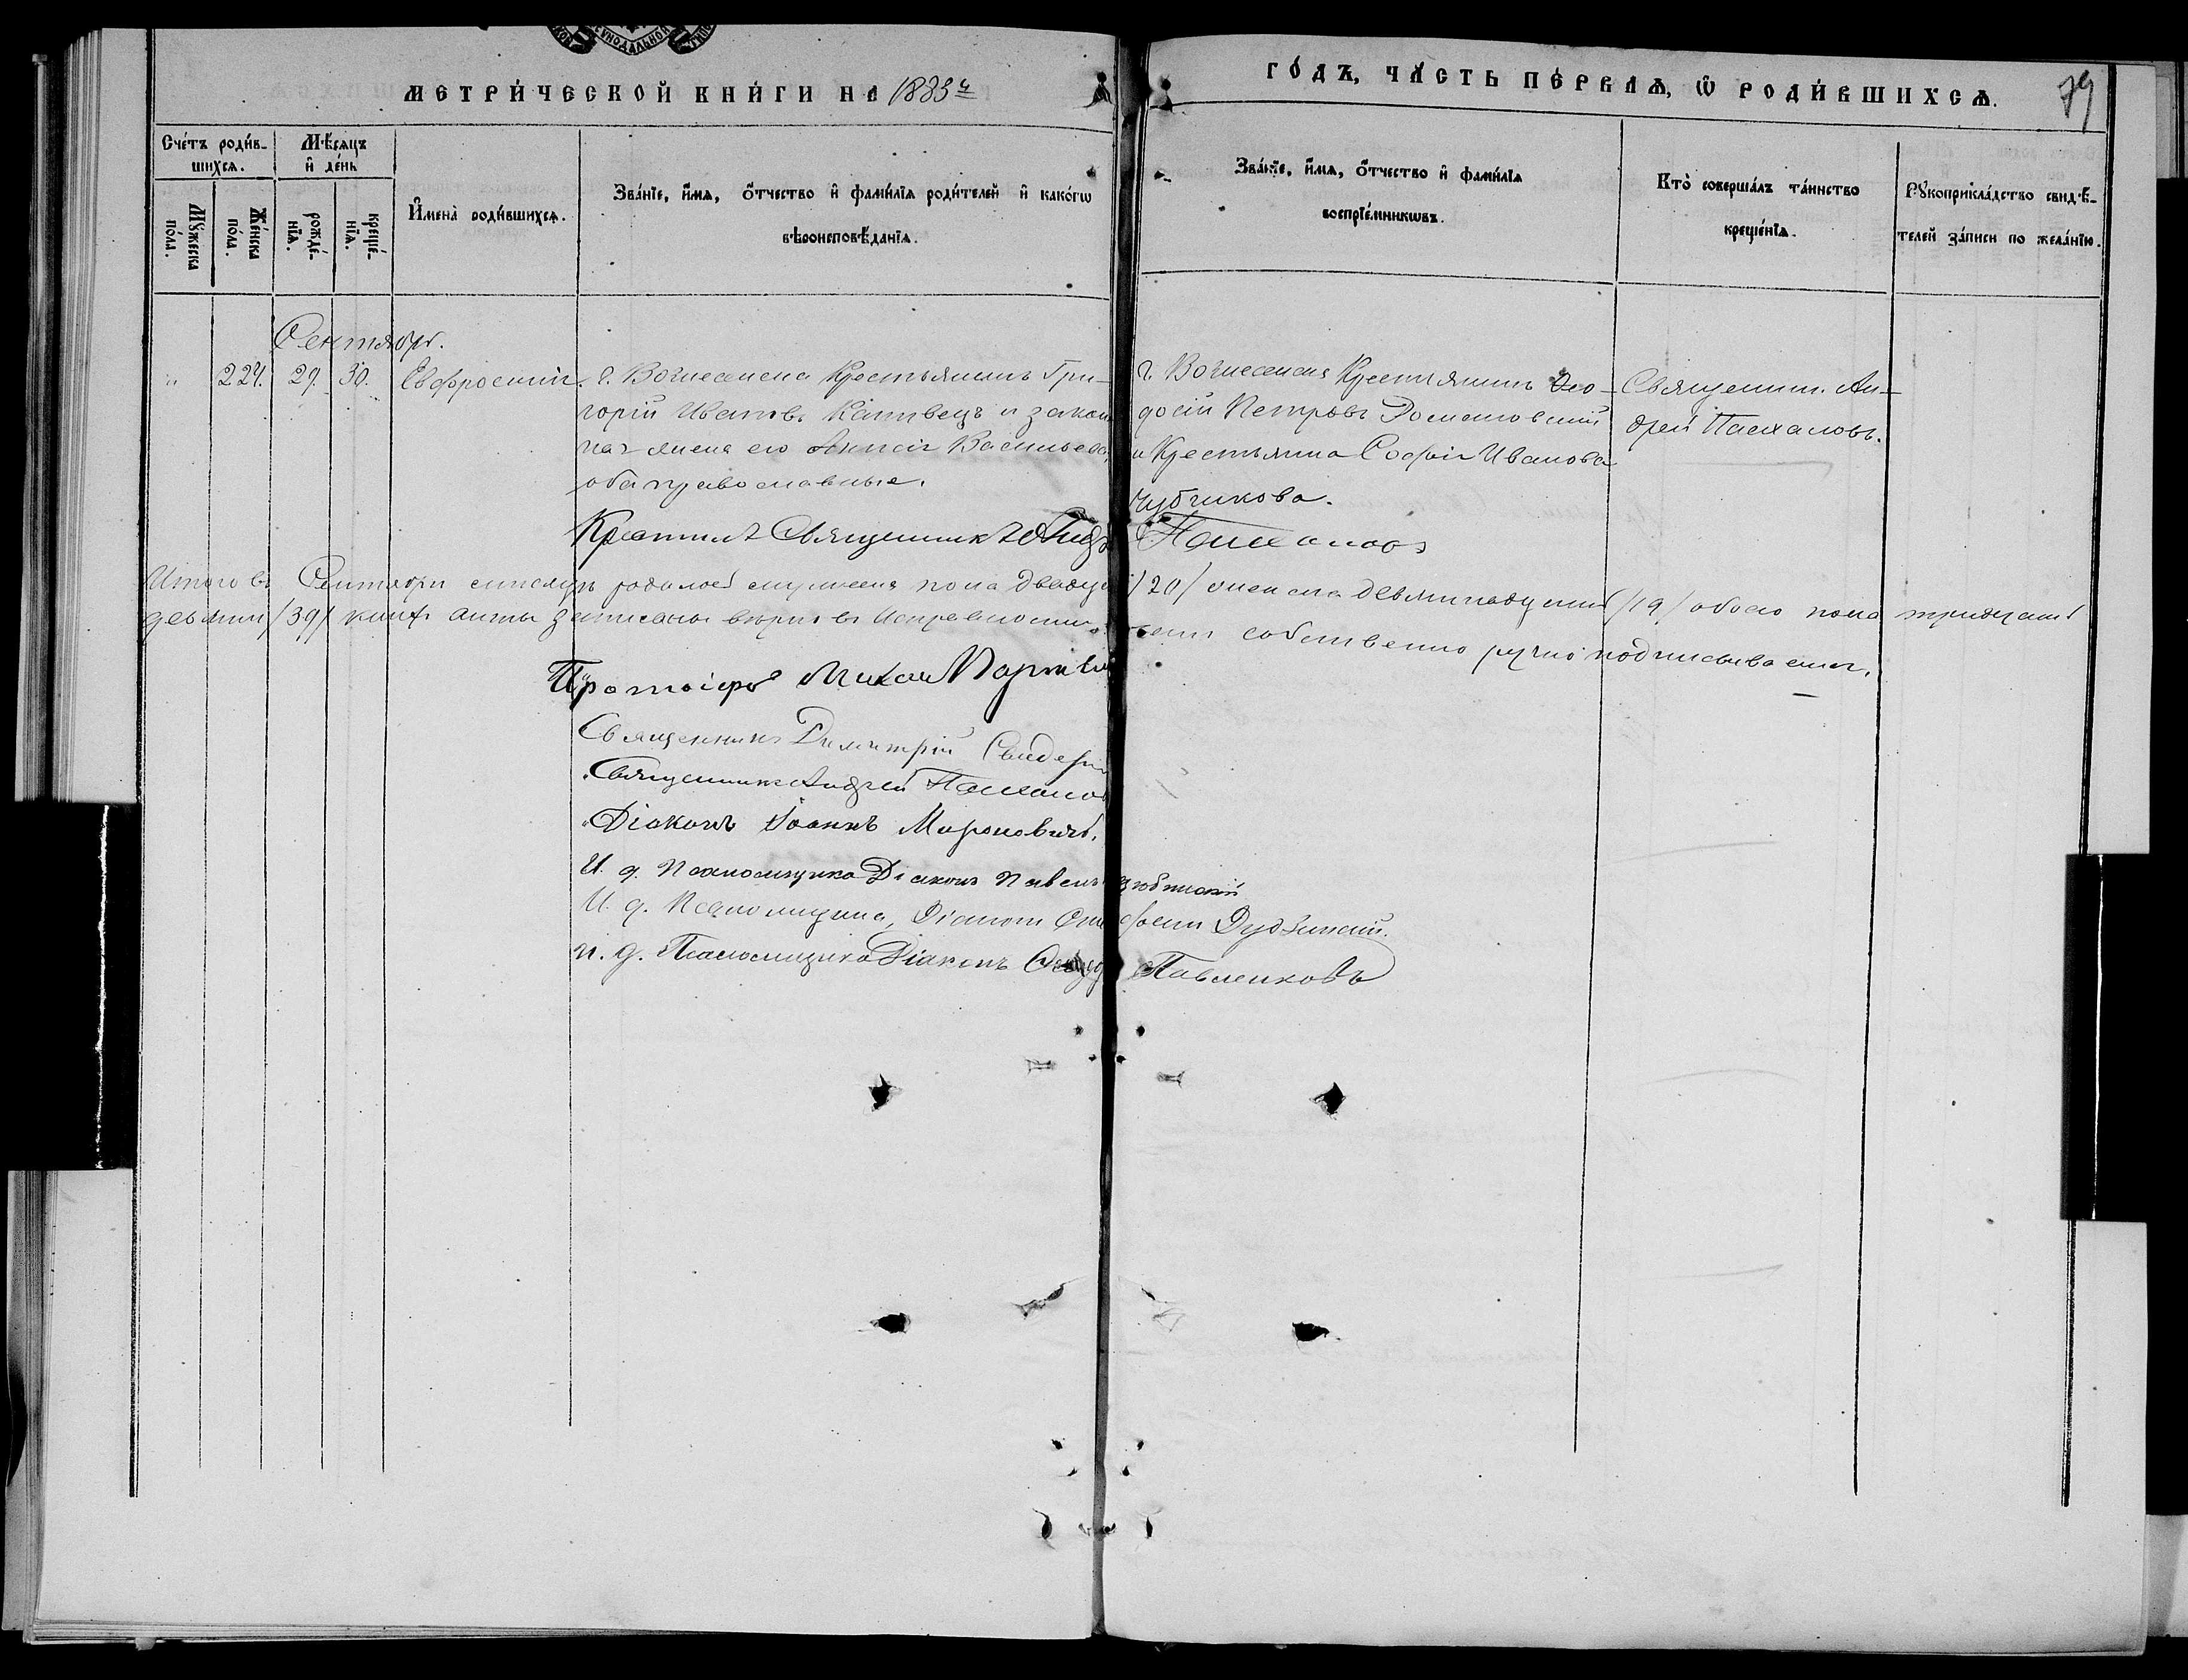 МЕТРИ́ЧЕСКОЙ КНИ́ГИ НА 1883й
ГО́ДЪ, ЧА́СТЬ ПЕ́РВАѦ, Ѽ РОДИ́ВШИХСѦ.
79
Сче́тъ роди́в-
шихсѧ.
Му́жеска по́ла.
Же́нска по́ла.
Мѣ́сѧцъ
и де́нь
рожде́-нїѧ.
креще́-нїѧ.
Имена̀ роди́вшихсѧ.
Зва́нїе, и́мѧ, о́тчество и фами́лїѧ роди́телей и како́гѡ
вѣроисповѣ́данїѧ.
Зва́нїе, и́мѧ, о́тчество и фами́лїѧ
воспрїе́мникѡвъ.
Кто̀ соверша́лъ та́инство
креще́нїѧ.
Рꙋкоприкла́дство свидѣ́-
телей за́писи по жела́нїю.
Сентябрь.
" 224. 29. 30. Евфросинія.
г. Вознесенска Крестьянинъ Гри-
горій Ивановъ и закон
ная жена его Васильева,
оба православные.
г. Вознесенска Крестьянинъ Ѳео-
досій Петровъ Домашовскій
и Крестьянка Софія Иванова
Чубчикова.
Священник. Ан-
дрей Пасхаловъ.
Крестилъ Священникъ Андр Пасхаловъ
Итого въ Сентябрѣ мѣсяцѣ родилось мужеска пола двадца /20/ женска девятнадцать /19/ обоего пола тридцать
девять /39/ акты записаны вѣрно въ Исправности собственно ручно подписываемся.
Протоіерей Михаил
Священникъ Димитрій
Священникъ Андрей Пасхалов
Діаконъ Іоаннъ Мироновичъ.
И. д. Псаломщика Діаконъ Павелъ
И. д. Псаломщика, Діаконъ Дудзинскій.
И. д. Псаломщика Діаконъ Павленковъ